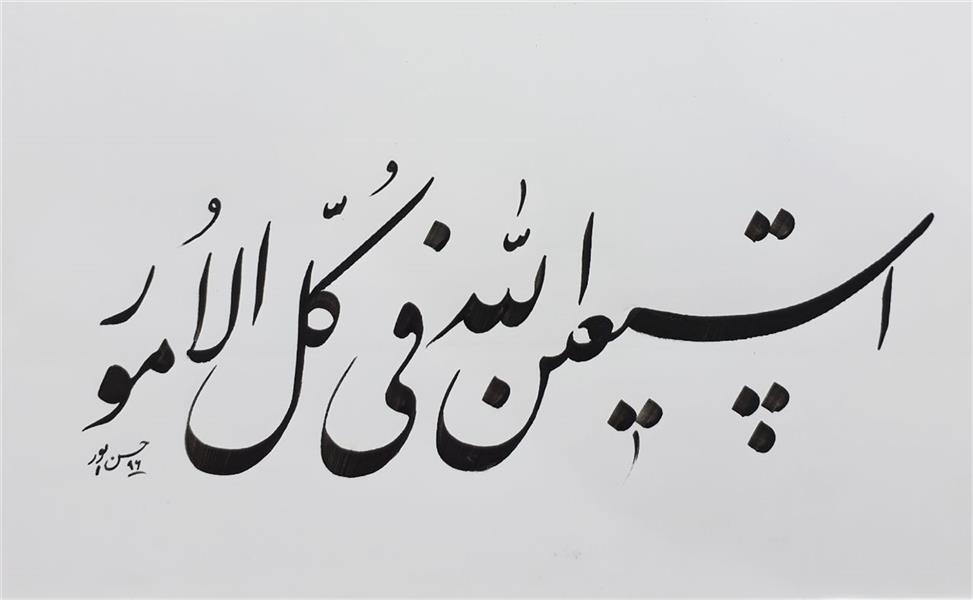 استعین الله فی کُلّ الاُمُور
حسن پور ۹۶